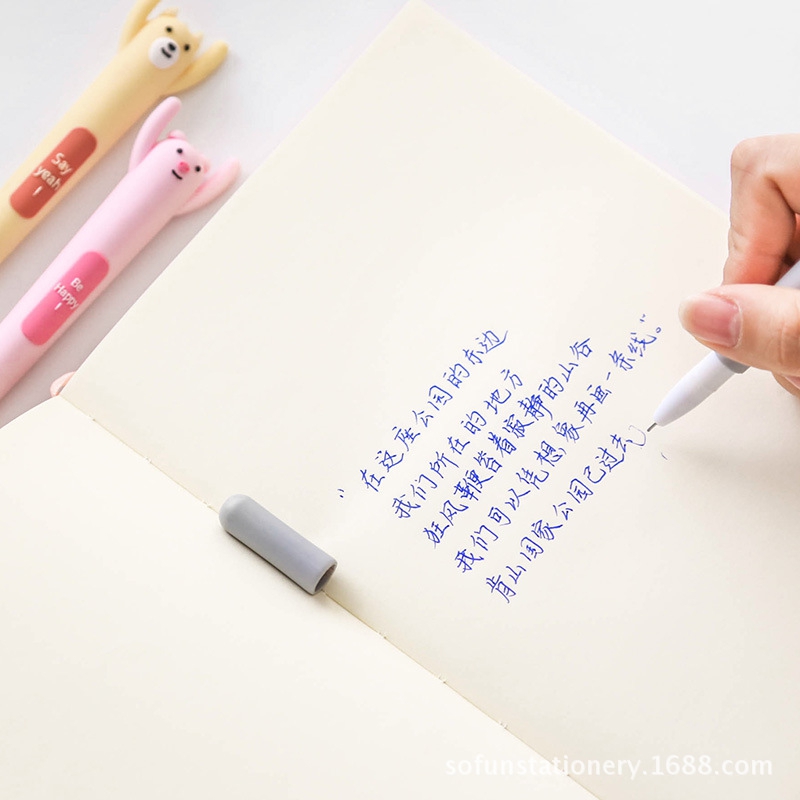 Say
yeah
!
Be
Happy
!
"在这座公园的东边
我们所在的地方
狂风鞭笞着寂静的山谷
我们可以凭想象再画一条线。"
肯山国家公园已过去
sofunstationery.1688.com